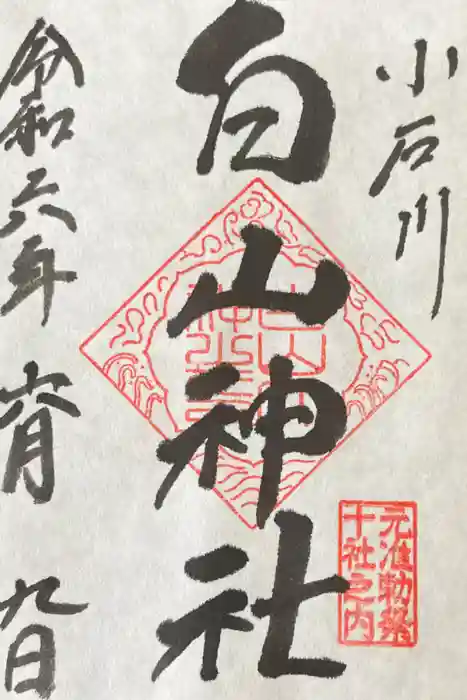 小石川
白山神社
元准勅祭
十社之内
令和六年 月 九日